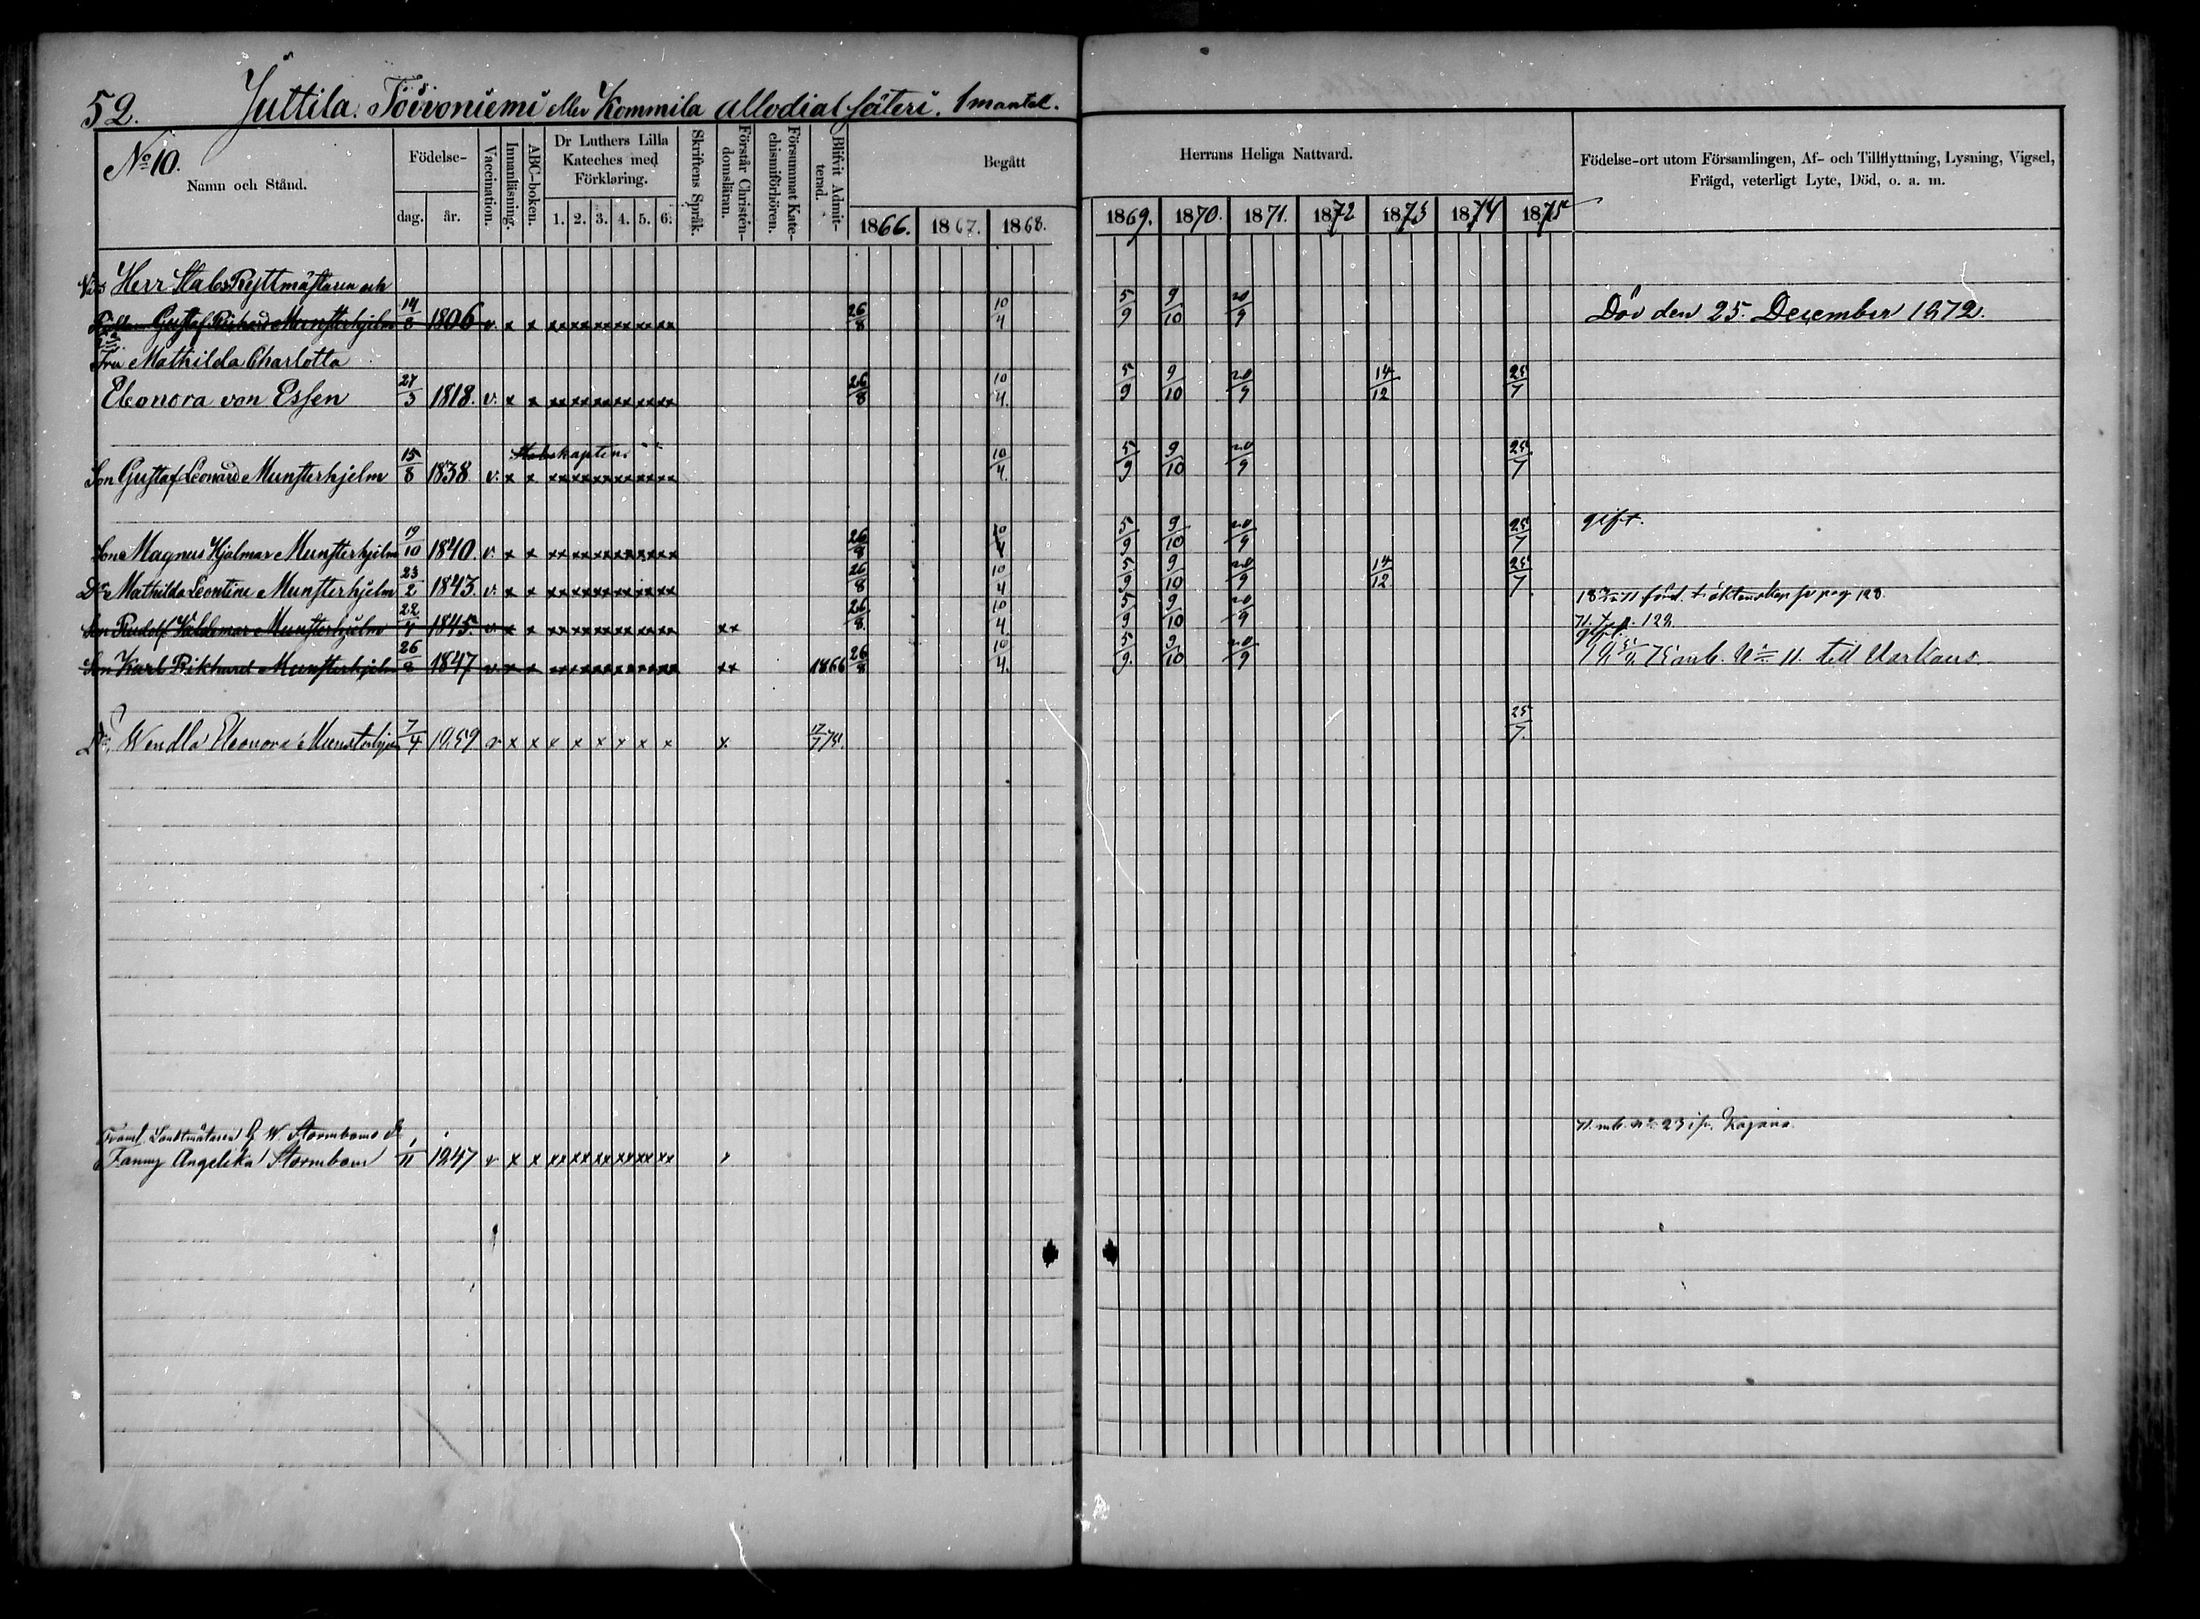 52. Juttila. Toivoniemi eller Kommila allodial säteri. 1 mantal.
No 10. Namn och Stånd.
Födelse-
dag. år.
Vaccination.
Innanläsning.
ABC-boken.
Dr Luthers Lilla
Kateches med
Förklaring.
1. 2. 3. 4. 5. 6.
Skriftens Språk.
Förstår Christen-
domsläran.
Försummat Kate-
chismiförhören.
Blifvit Admit-
terad.
Begått Herrans Heliga Nattvard.
1866. 1867. 1868. 1869. 1870. 1871. 1872 1873 1874 1875
Födelse-ort utom Församlingen, Af- och Tillflyttning, Lysning, Vigsel,
Frägd, veterligt Lyte, Död, o. a. m.
Herr StabsRyttmästaren och
Gustaf Rikhard Munsterhjelm 14/8 1806 v. x x xx xx xx xx xx xx 26/8 10/4 5/9 9/10 20/9 Döv den 25. December 1872.
Fru Mathilda Charlotta
Eleonora von Essen 27/3 1818. v. x x xx xx xx xx xx xx 26/8 10/4. 5/9 9/10 20/9 14/12 25/7
Stabskapten.
Son Gustaf Leonard Munsterhjelm 15/8 1838 v. x x xx xx xx xx xx xx 10/4. 5/9 9/10 20/9 25/7
Son Magnus Hjalmar Munsterhjelm 19/10 1840. v. x x xx xx xx xx xx xx 26/8 10/4 5/9 9/10 20/9 25/7 gift.
Dr Mathilda Leontine Munsterhjelm 23/2 1843. v. x x xx xx xx xx xx xx 26/8 10/4 5/9 9/10 20/9 14/12 25/7
Son Rudolf Valdemar Munsterhjelm 22/4 1845. v. x x xx xx xx xx xx xx xx 26/8. 10/4 5/9 9/10 20/9
Son Karl Rikhard Munsterhjelm 26/8 1847 v. x x xx xx xx xx xx xx xx 1866 26/8 10/4. 5/9. 9/10 20/9 75 till Varkaus
Dr. Wendla Eleonora Munsterhjelm 7/4 1859 v x x x x x x x x x 17/7 75. 25/7.
Landtmätaren G. W. Stormboms dr
Fanny Angelika Stormbom 1/11 1847 v x x xx xx xx xx xx xx x Kajana